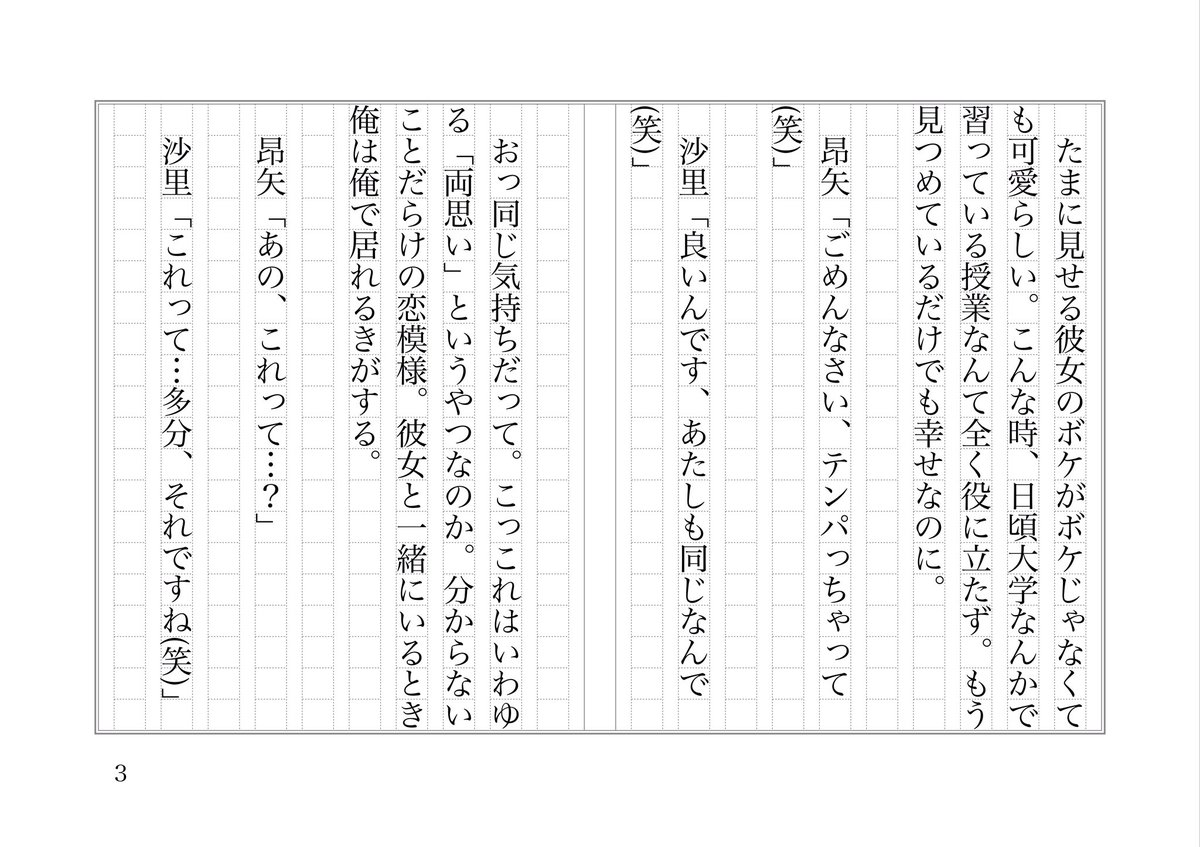 たまに見せる彼女のボケがボケじゃなくて
も可愛らしい。こんな時、日頃大学なんかで
習っている授業なんて全く役に立たず。もう
見つめているだけでも幸せなのに。
昂矢「ごめんなさい、テンパっちゃって
(笑)」
沙里「良いんです、あたしも同じなんで
(笑)」
おっ同じ気持ちだって。こっこれはいわゆ
る「両思い」というやつなのか。分からない
ことだらけの恋模様。彼女と一緒にいるとき
俺は俺で居れるきがする。
昂矢「あの、これって…?」
沙里「これって…多分、それですね(笑)」
3